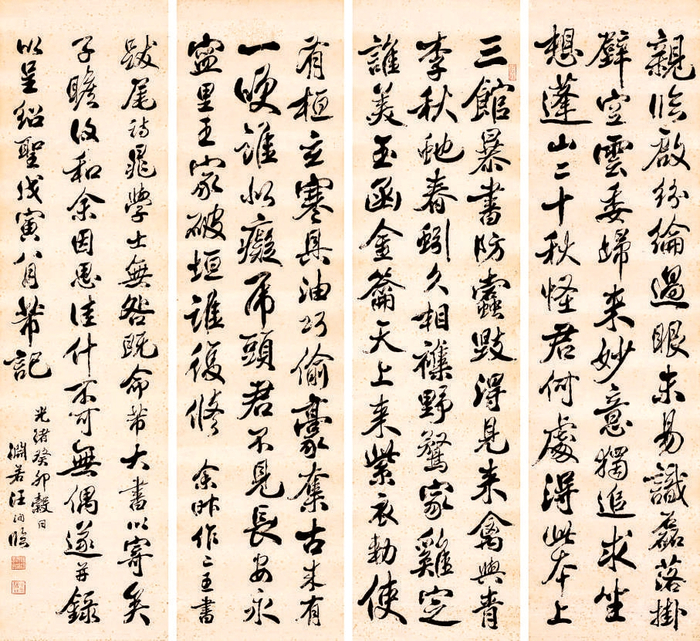 親臨啟紛綸過眼未易識磊落掛
壁空雲委歸来妙意獨追求坐
想蓬山二十秋怪君何處得此本上
三館暴書防蠹毀得見来禽與青
李秋虵春蚓久相雜野鶩家雞定
誰美玉函金籥天上来紫衣勅使
有桓玄寒具油巧偷豪奪古来有
一咲誰似癡虎頭君不見長安永
寧里王家破垣誰復脩 余昨作二王書
跋尾詩晁學士無咎既命芾大書以寄矣
子瞻和余因思佳什不可無偶遂并録
以呈紹聖戊寅八月芾記
光緒癸卯穀日
淵若汪洵臨